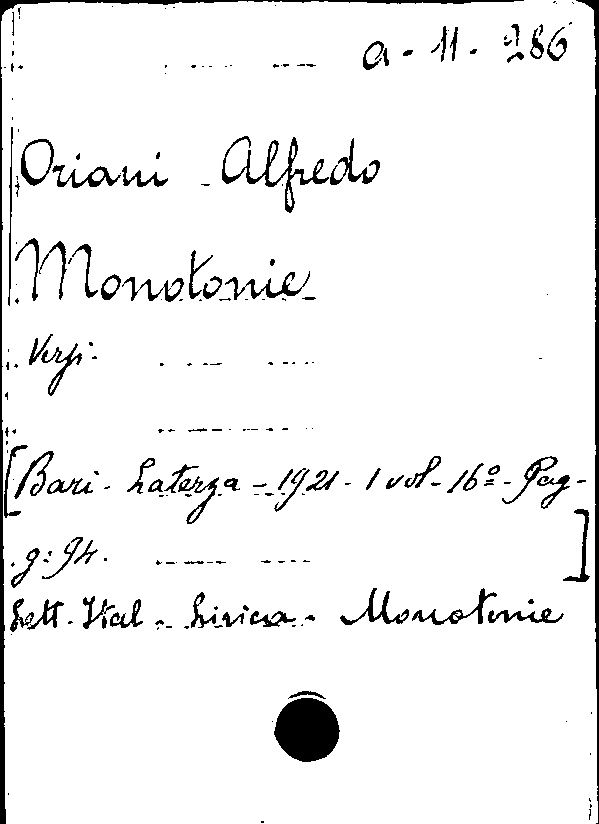 a - 11. 286
Oriani Alfredo
Monotonie
Versi.
[Bari - Laterza - 1921 - 1 vol - 16º - Pag-
g: 94. ]
Lett. Ital - Lirica - Monotonie